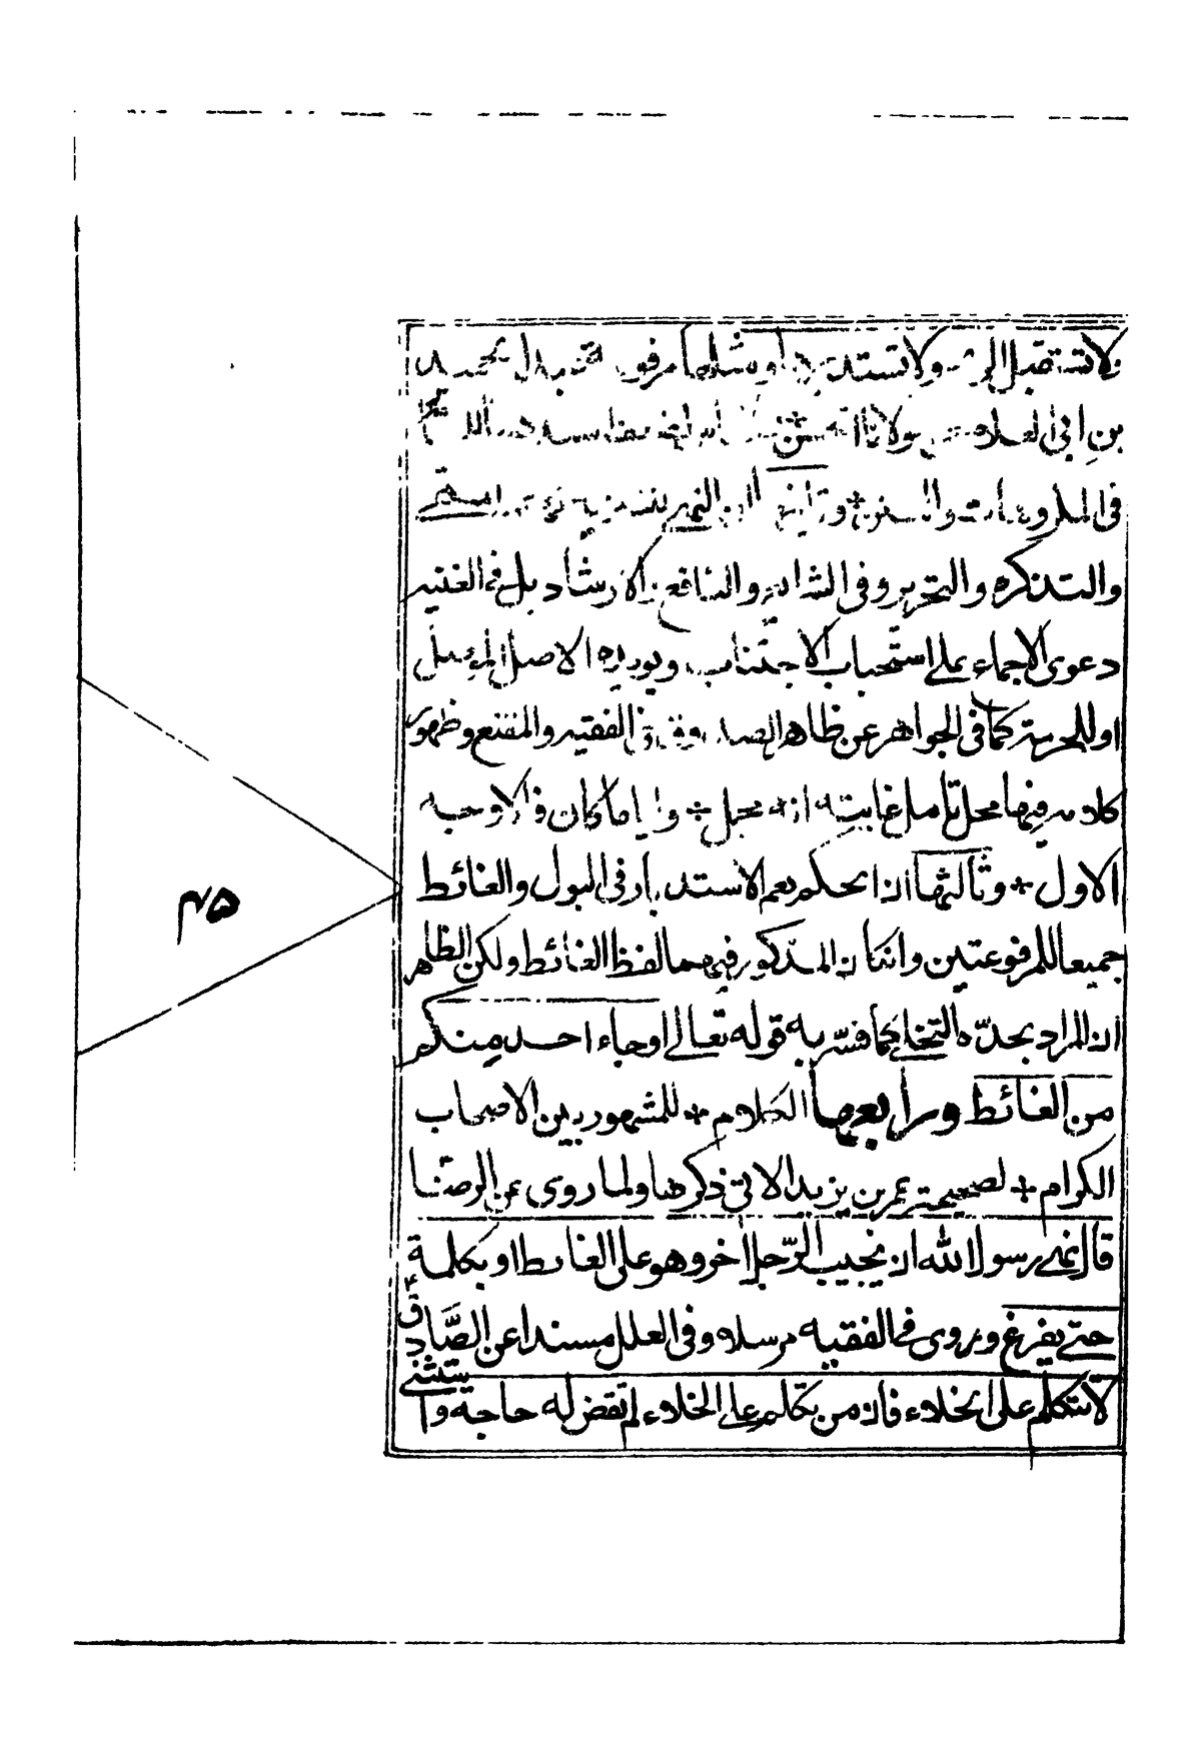 لا تستقبل الريح ولا تستدبرها ومثلها مرفوعة عبد الحميد
بن ابى العلاء
فى المكروهات والسنن + و النهى
والتذكره والتحرير وفى الشرايع والنافع والارشاد بل فى الغنيه
دعوى الاجماع على استحباب الاجتناب ويويده الاصل
او للحرمة كما فى الجواهر عن ظاهر الصدوق فى الفقيه والمقنع وظهور
كلامه فيها محل تامل غايته انه مجمل + و اياما كان فالاوجه
الاول + وثالثها ان الحكم يعم الاستدبار فى البول والغائط
جميعا للمرفوعتين وانكان المذكور فيهما لفظ الغائط ولكن الظاهر
ان المراد بحده التخلى كما فسر به قوله تعالى او جاء احد منكم
من الغائط ورابعها الكلام + للمشهور بين الاصحاب
الكرام + لصحيحة عمر بن يزيد الاتى ذكرها ولما روى عن الرضا
قال نهى رسول الله ان يجيب الرّجل اخر وهو على الغائط او بكلمة
حتى يفرغ وروى فى الفقيه مرسلا وفى العلل مسندا عن الصَّادق ع
لا تتكلم على الخلاء فان من تكلم على الخلاء لم تقض له حاجة و استثنى
۴۵